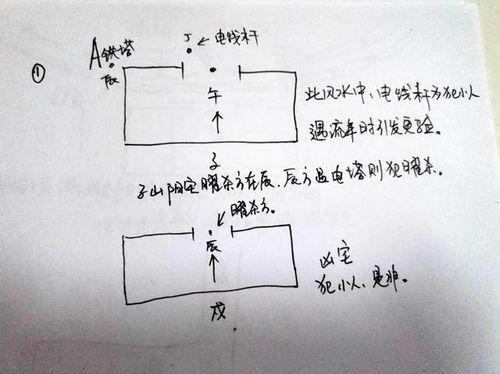 ①
A铁塔
辰
J
电线杆
午
子
此风水中、电线杆为犯小人
遇流年时引发更验。
子山阳宅曜杀方在辰、辰方遇电塔则犯曜杀。
曜杀方。
辰
戌
凶宅
犯小人、是非。